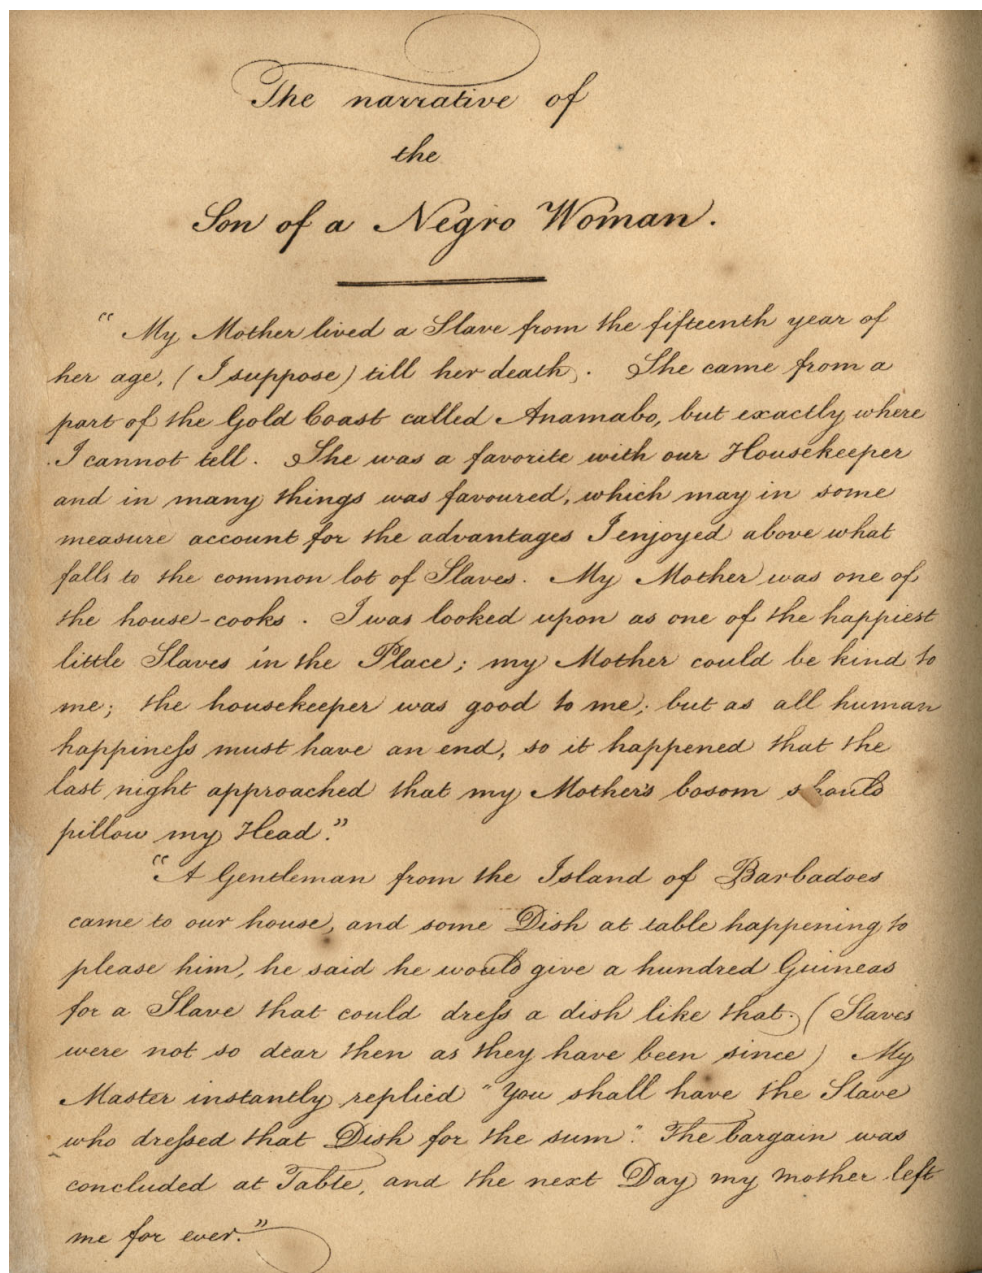 The narrative of
the
Son of a Negro Woman.
"My Mother lived a Slave from the fifteenth year of
her age, (I suppose) till her death. She came from a
part of the Gold Coast called Anamabo, but exactly where
I cannot tell. She was a favorite with our Housekeeper
and in many things was favoured, which may in some
measure account for the advantages I enjoyed above what
falls to the common lot of Slaves. My Mother was one of
the house-cooks. I was looked upon as one of the happiest
little Slaves in the Place; my Mother could be kind to
me; the housekeeper was good to me; but as all human
happineſs must have an end, so it happened that the
last night approached that my Mother's bosom should
pillow my Head."
"A Gentleman from the Island of Barbadoes
came to our house, and some Dish at table happening to
please him, he said he would give a hundred Guineas
for a Slave that could dreſs a dish like that. (Slaves
were not so dear then as they have been since) My
Master instantly replied "You shall have the Slave
who dreſsed that Dish for the sum". The bargain was
concluded at Table, and the next Day my mother left
me for ever."